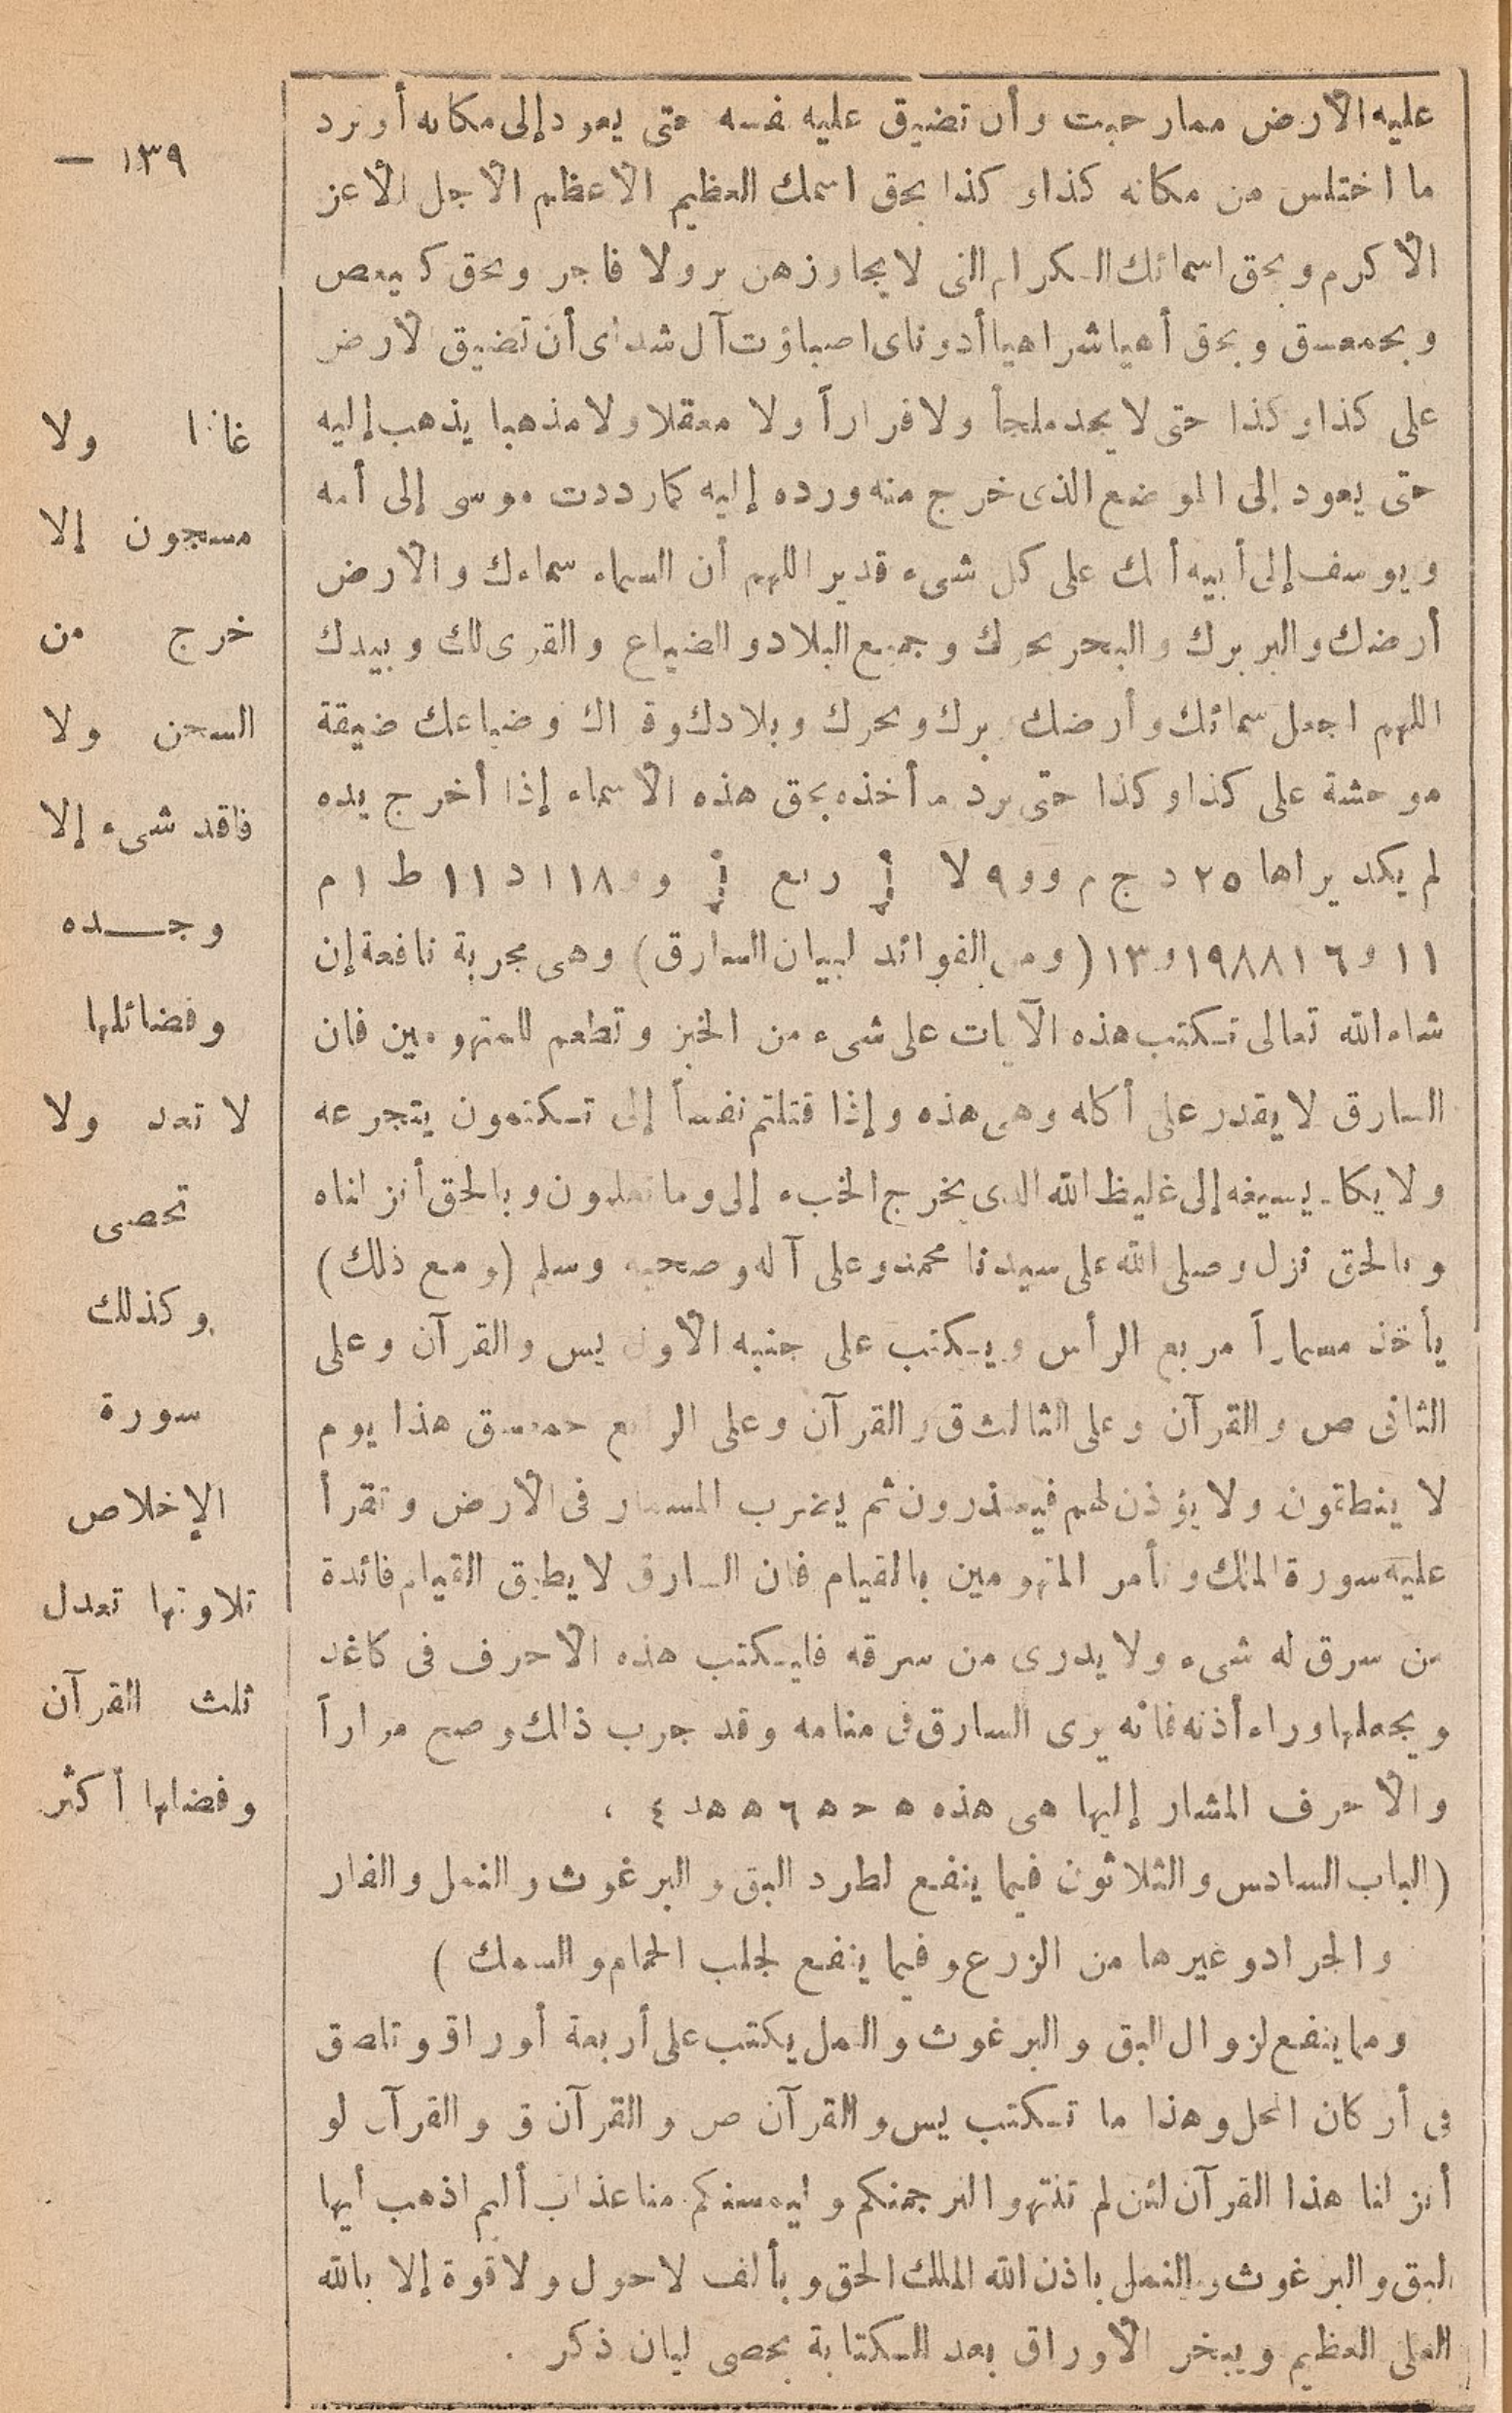 ١٣٩ —
عليه الأرض ممار حبت وأن تضيق عليه نفسه حتى يعود إلى مكانه أو يرد
ما اختلس من مكانه كذا و كذا بحق اسمك العظيم الأعظم الأجل الأعز
الأكرم وبحق اسمائك الكرام التى لا يجاوزهن بر ولا فاجر وبحق كهيعص
وبحمعسق وبحق أهيا شراهيا أدوناى اصباؤت آل شداى أن تضيق الأرض
على كذا وكذا حتى لا يجد ملجأ ولا فراراً ولا معقلا ولا مذهبا يذهب إليه
حتى يعود إلى الموضع الذى خرج منه ورده إليه كما رددت موسى إلى أمه
ويوسف إلى أبيه أنك على كل شىء قدير اللهم أن السماء سماءك والأرض
أرضك والبر برك والبحر بحرك وجميع البلاد والضياع والقرى لك وبيدك
اللهم اجعل سمائك وأرضك وبرك وبحرك وبلادك وقراك وضياعك ضيقة
موحشة على كذا وكذا حتى يرد ما أخذه بحق هذه الأسماء إذا أخرج يده
لم يكد يراها ٢٥ د ج م و و ٩ لا ربع و و ١١٨ د ١١ ط ا م
١١ و ٦ ١٩٨٨١ و ١٣ (ومن الفوائد لبيان السارق) وهى مجربة نافعة إن
شاء الله تعالى تكتب هذه الآيات على شىء من الخبز وتطعم للمتهومين فان
السارق لا يقدر على أكله وهى هذه وإذا قتلتم نفساً إلى تكتمون يتجرعه
ولا يكاد يسيغه إلى غليظ الله الذى يخرج الخبء إلى وما تعلنون وبالحق أنزلناه
وبالحق نزل وصلى الله على سيدنا محمد وعلى آله وصحبه وسلم (ومع ذلك)
يأخذ مسماراً مربع الرأس ويكتب على جنبه الأول يس والقرآن وعلى
الثانى ص والقرآن وعلى الثالث ق والقرآن وعلى الرابع حمعسق هذا يوم
لا ينطقون ولا يؤذن لهم فيعتذرون ثم يضرب المسمار فى الأرض وتقرأ
عليه سورة الملك وتأمر المتهومين بالقيام فان السارق لا يطيق القيام فائدة
من سرق له شىء ولا يدرى من سرقه فليكتب هذه الأحرف فى كاغد
ويجعلها وراء أذنه فانه يرى السارق فى منامه وقد جرب ذلك وصح مراراً
والأحرف المشار إليها هى هذه ه ح ه ٦ ه ه د ٤ ،
(الباب السادس والثلاثون فيما ينفع لطرد البق والبرغوث والنمل والفار
والجراد وغيرها من الزرع وفيما ينفع لجلب الحمام والسمك )
ومما ينفع لزوال البق والبرغوث والنمل يكتب على أربعة أوراق وتلصق
فى أركان المحل وهذا ما تكتب يس والقرآن ص والقرآن ق والقرآن لو
أنزلنا هذا القرآن لئن لم تنتهوا لنرجمنكم وليمسنكم منا عذاب أليم اذهب أيها
البق والبرغوث والنمل باذن الله الملك الحق وبألف لا حول ولا قوة إلا بالله
العلى العظيم ويبخر الأوراق بعد الكتابة بحصى لبان ذكر .
ولا
مسجون إلا
خرج من
السجن ولا
فاقد شىء إلا
وجـــده
وفضائلها
لا تعد ولا
تحصى
وكذلك
سورة
الإخلاص
تلاوتها تعدل
ثلث القرآن
وفضلها أكثر